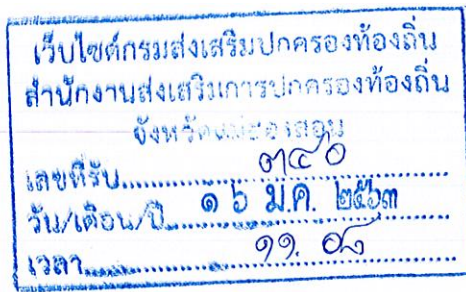 เว็บไซต์กรมส่งเสริมปกครองท้องถิ่น
สำนักงานส่งเสริมการปกครองท้องถิ่น
จังหวัดแม่ฮ่องสอน
เลขที่รับ ๓๔๐
วัน/เดือน/ปี ๑๖ ม.ค. ๒๕๖๓
เวลา ๑๑.๐๘